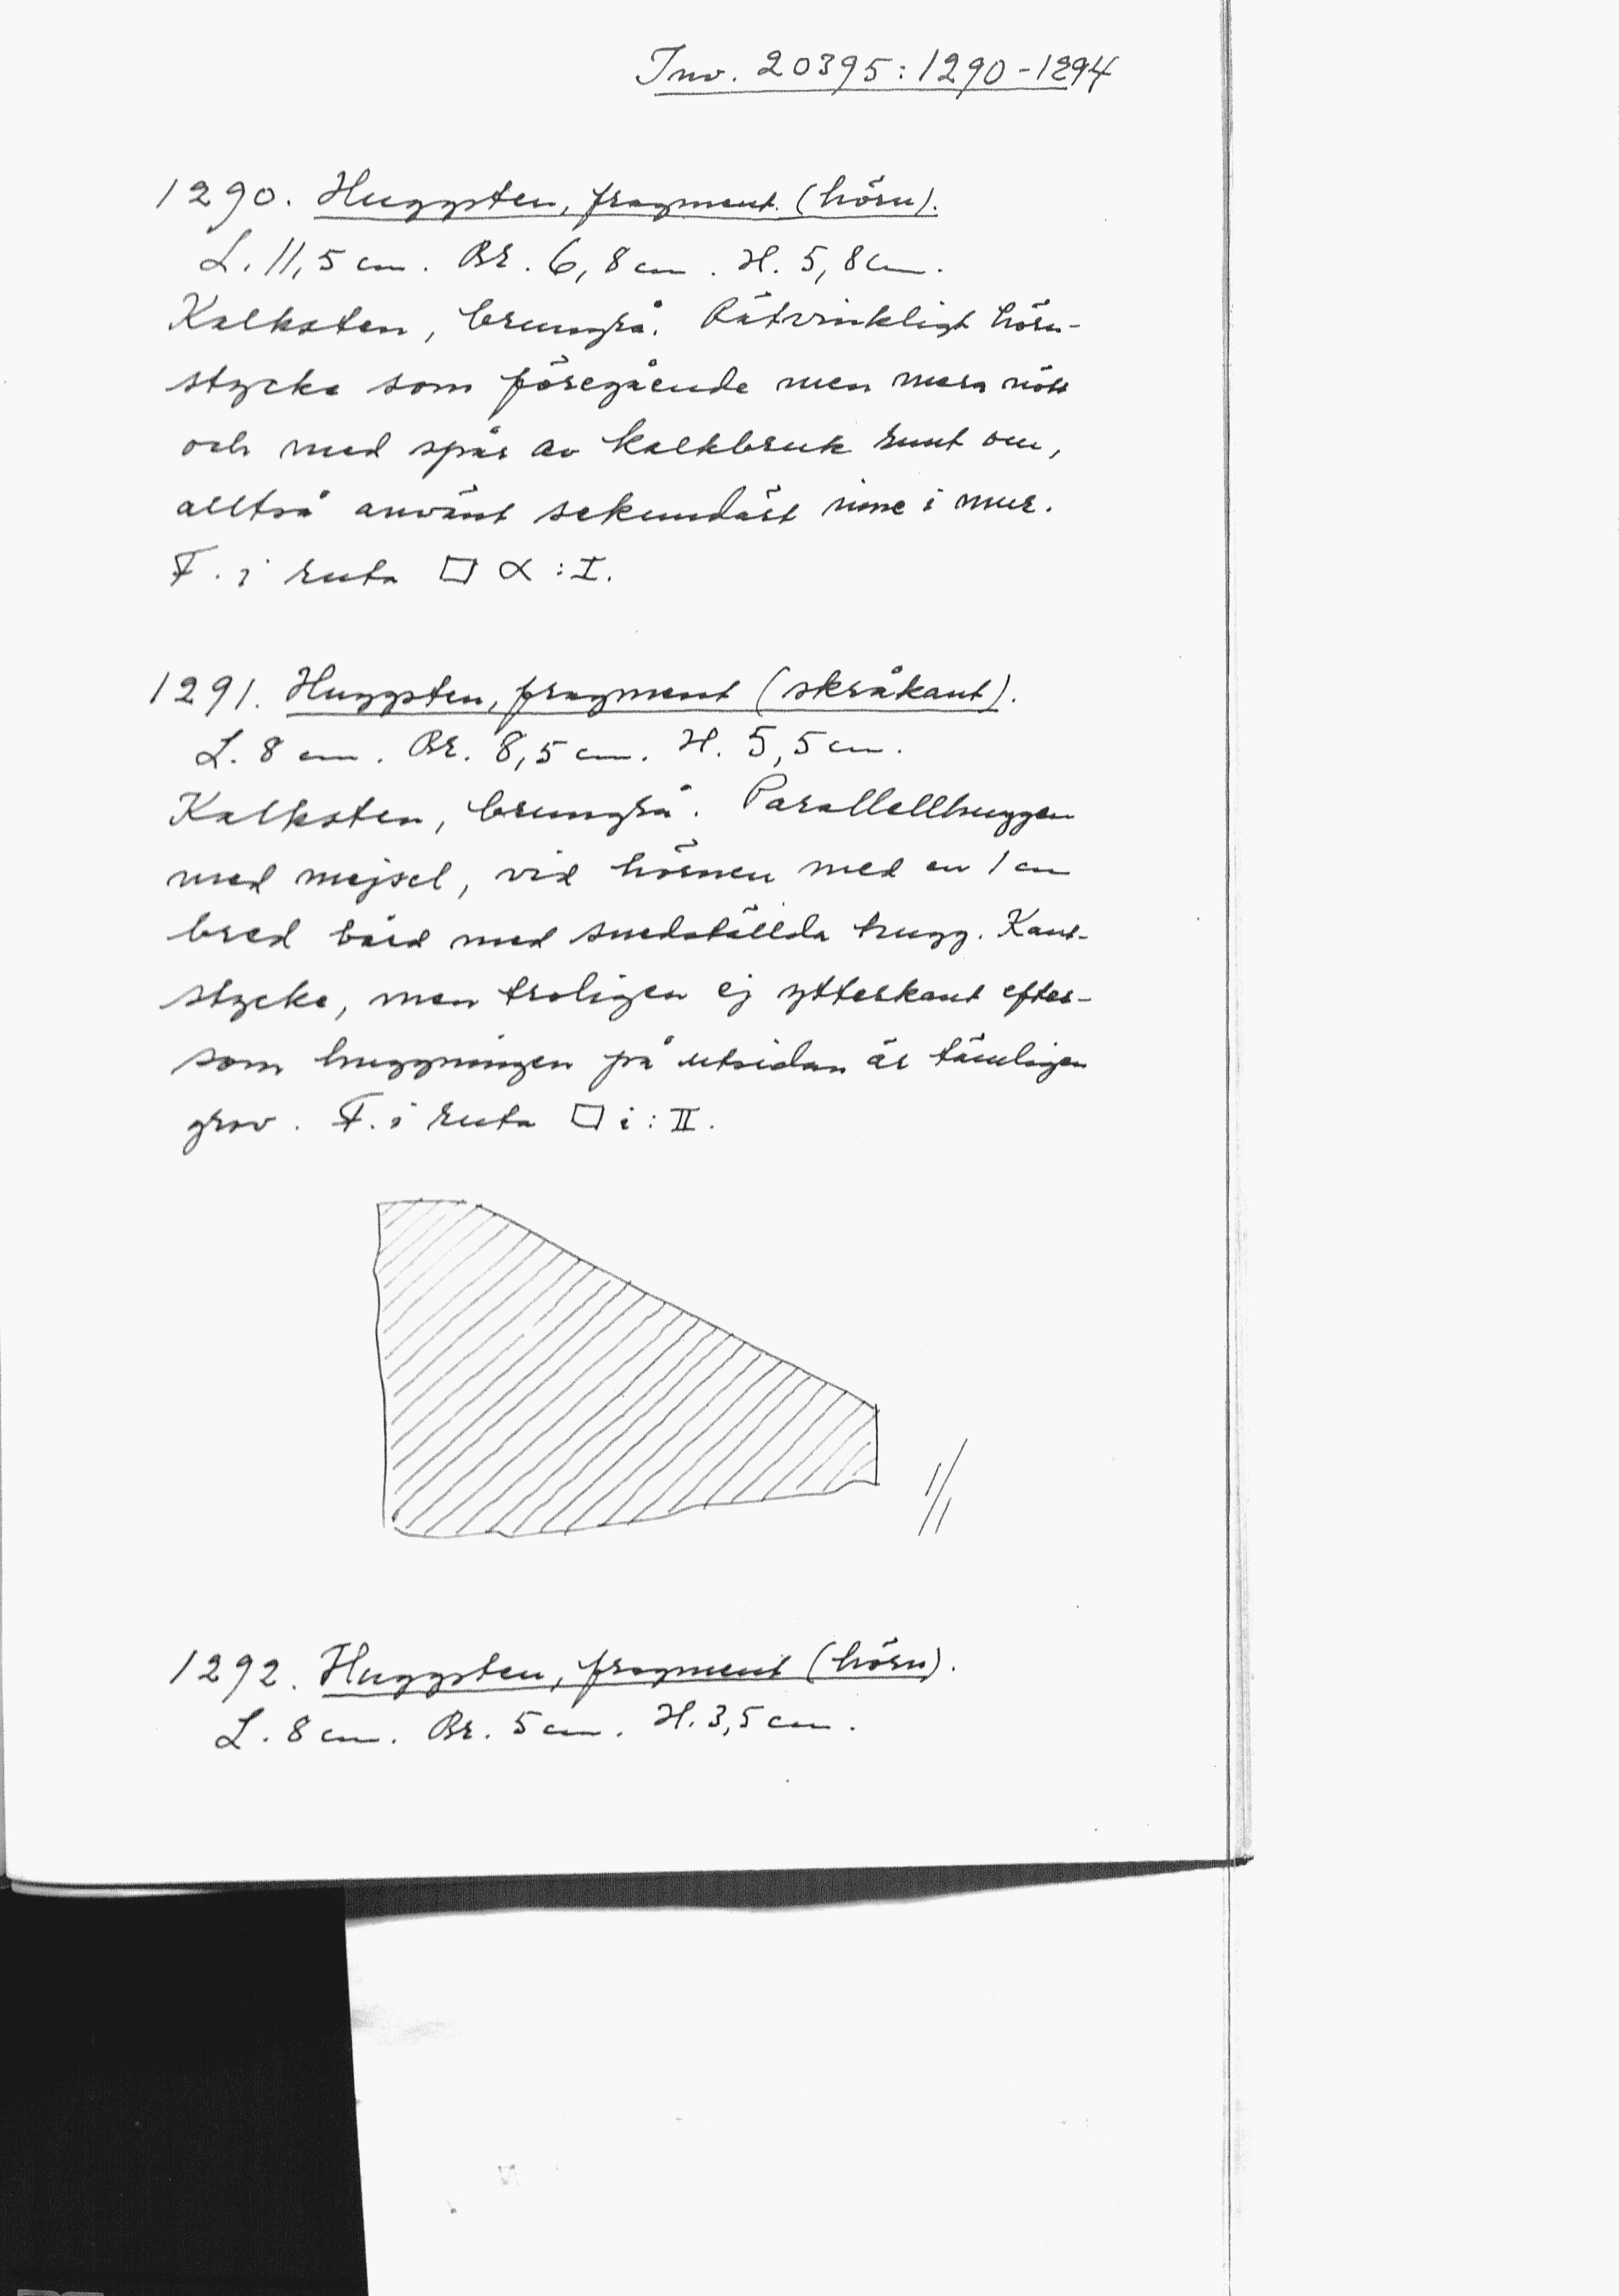 Inv. 20395:1290-1294
1290. Huggsten, fragment. (hörn).
L. 11,5 cm. Br. 6,8 cm. H. 5,8 cm.
Kalksten, brungrå. Rätvinkligt hörn-
stycke som föregående men mera nött
och med spår av kalkbruk runt om,
alltså använt sekundärt inne i mur.
F. i ruta □ α:I.
1291. Huggsten, fragment (skråkant).
L. 8 cm. Br. 8,5 cm. H. 5,5 cm.
Kalksten, brungrå. Parallellhuggen
med mejsel, vid hörnen med en 1 cm
bred bård med snedställda hugg. Kant-
stycke, men troligen ej ytterkant efter-
som huggningen på utsidan är tämligen
grov. F. i ruta □ i:II.
1/1
1292. Huggsten, fragment (hörn).
L. 8 cm. Br. 5 cm. H. 3,5 cm.